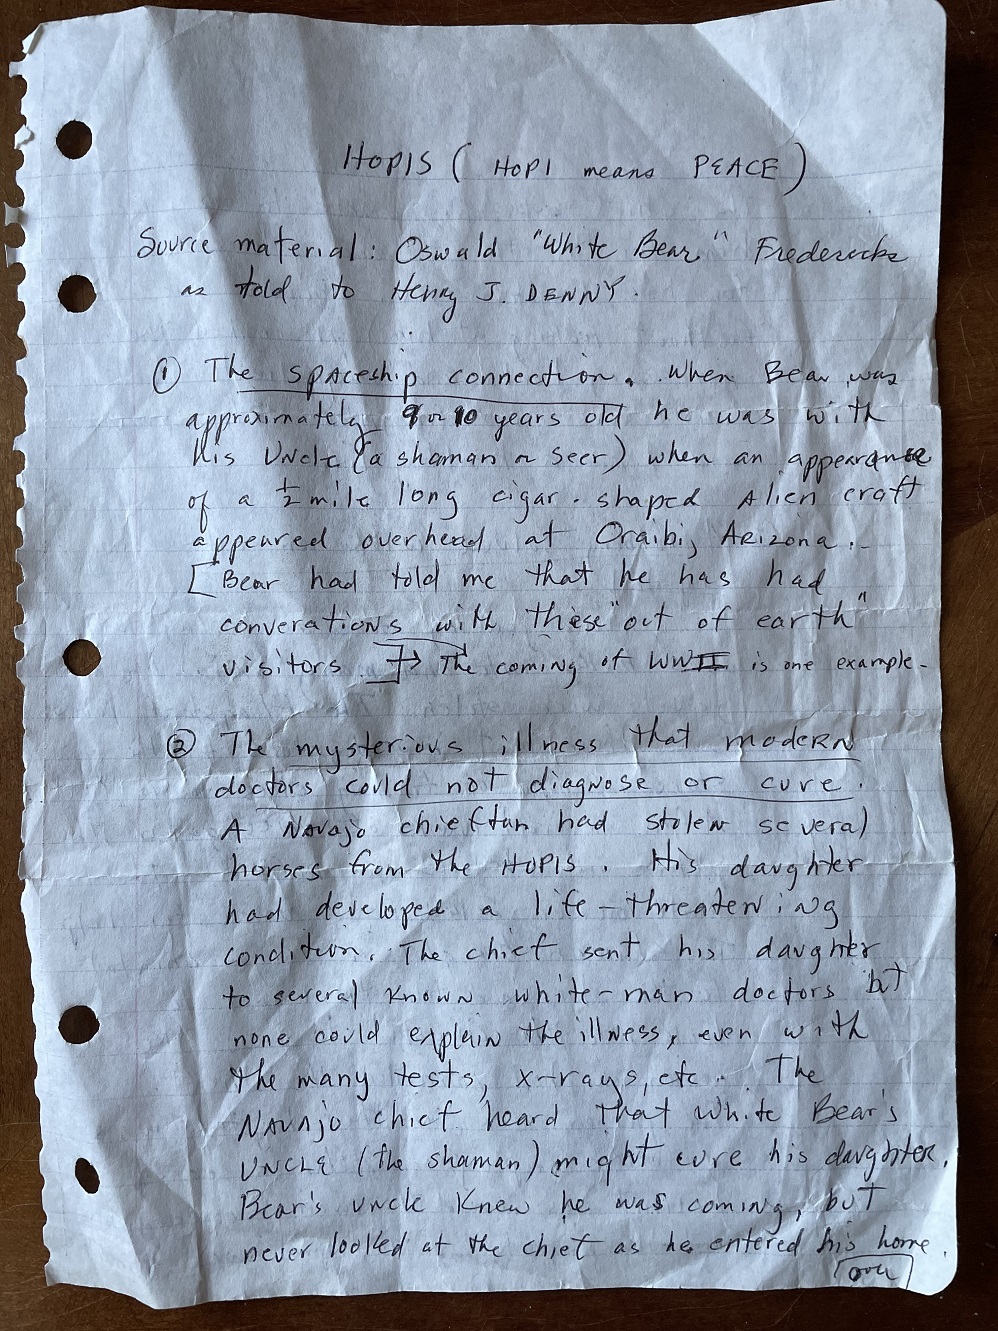 HOPIS ( HOPI means PEACE )
Source material: Oswald "White Bear" Fredericks
as told to Henry J. DENNY.
① The spaceship connection. When Bear was
approximately 9 or 10 years old he was with
his Uncle (a shaman or seer) when an appearance
of a ½ mile long cigar-shaped Alien craft
appeared overhead at Oraibi, Arizona.
[Bear had told me that he has had
converations with these "out of earth"
visitors ]→ The coming of WWII is one example-
② The mysterious illness that modern
doctors could not diagnose or cure.
A Navajo chieftan had stolen several
horses from the HOPIS. His daughter
had developed a life-threatening
condition. The chief sent his daughter
to several known white-man doctors but
none could explain the illness, even with
the many tests, x-rays, etc. The
Navajo chief heard that White Bear's
UNCLE (the shaman) might cure his daughter.
Bear's uncle knew he was coming, but
never looked at the chief as he entered his home.
over